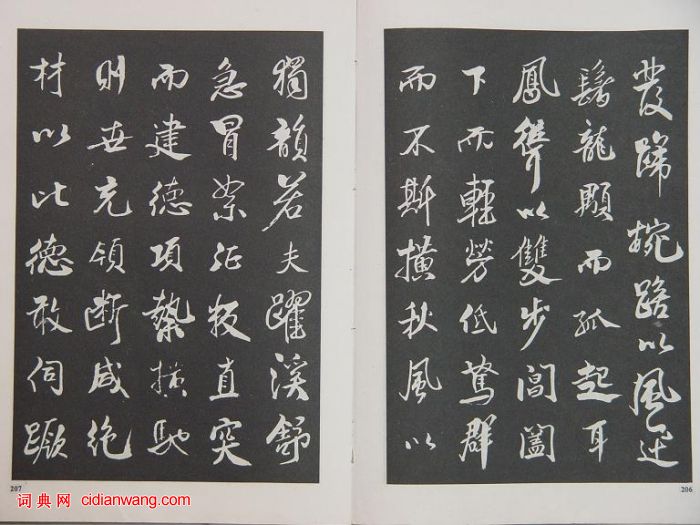 發蹄踠踣以風迅
鬐龍顒而孤起耳
鳳聳以雙步閶闔
下而輕勞低駑群
而不斯橫秋風以
獨韻若夫躍溪舒
急冒絮征叛直突
而建德項縶橫馳
則世充領断咸絶
材以比德敢伺蹶
207
206
词典网 cidianwang.com